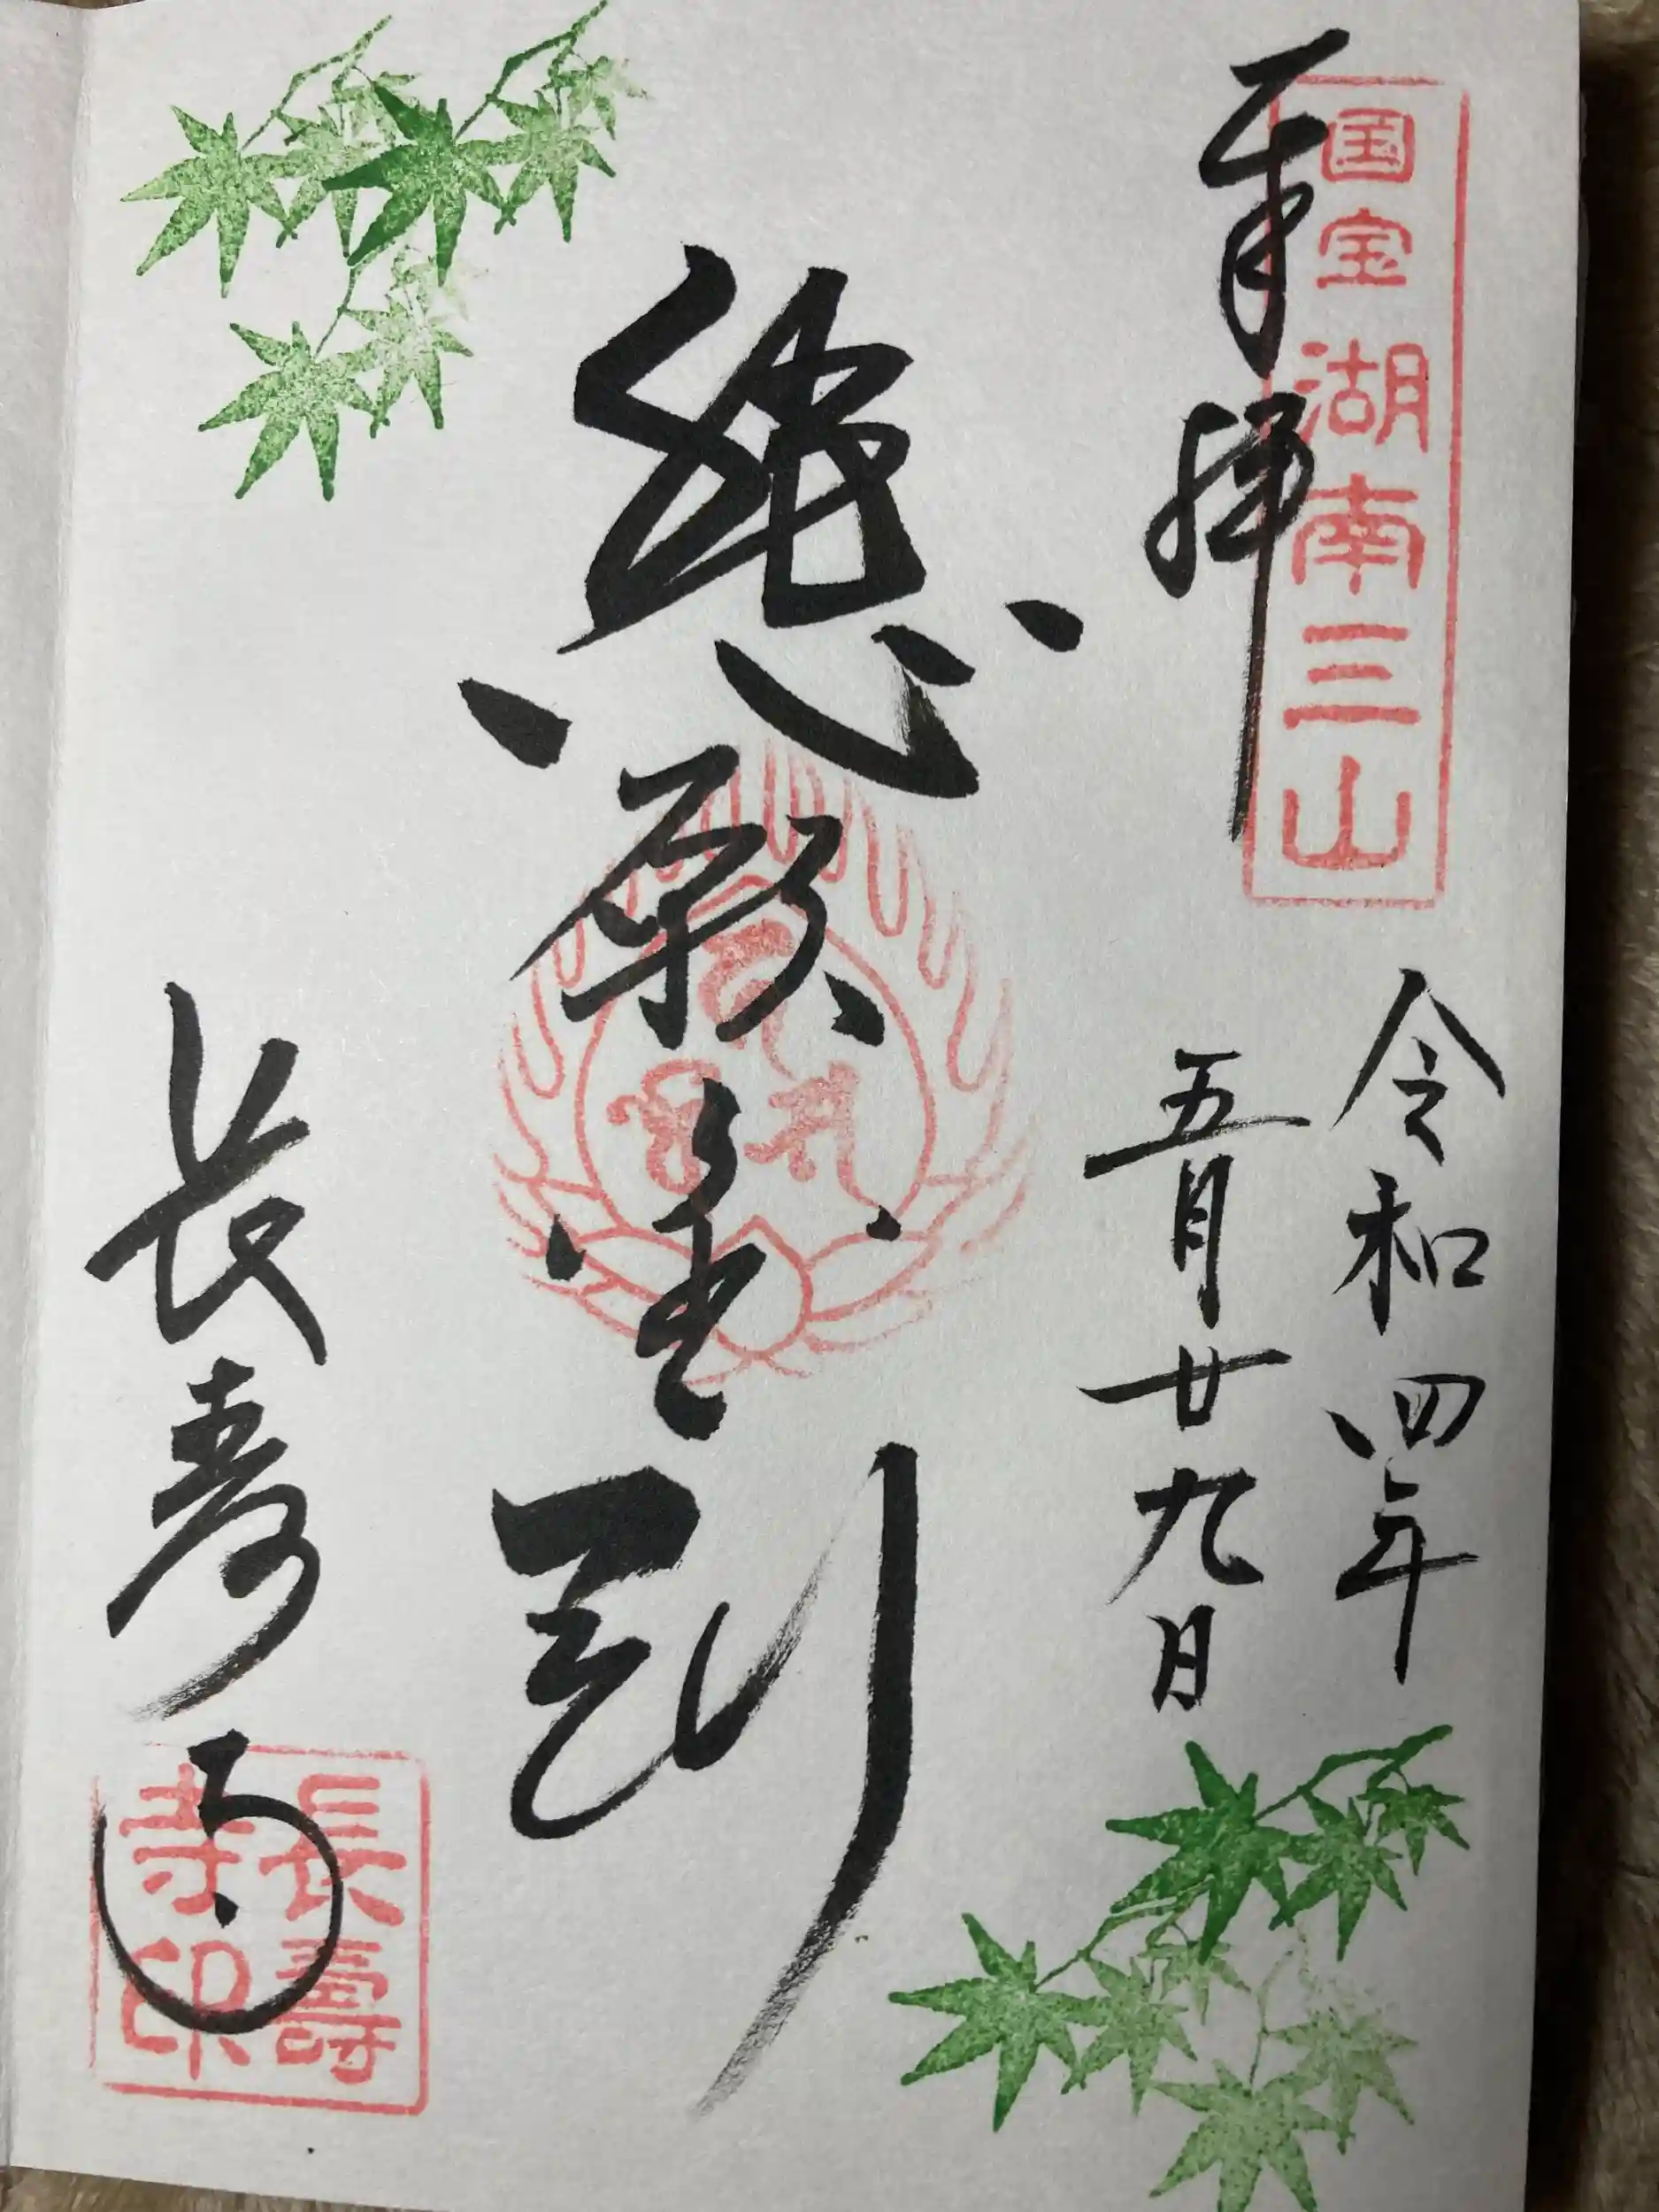 奉拝
国宝 湖南三山
令和四年
五月廿九日
悲願金剛
長寿寺
長壽
寺印